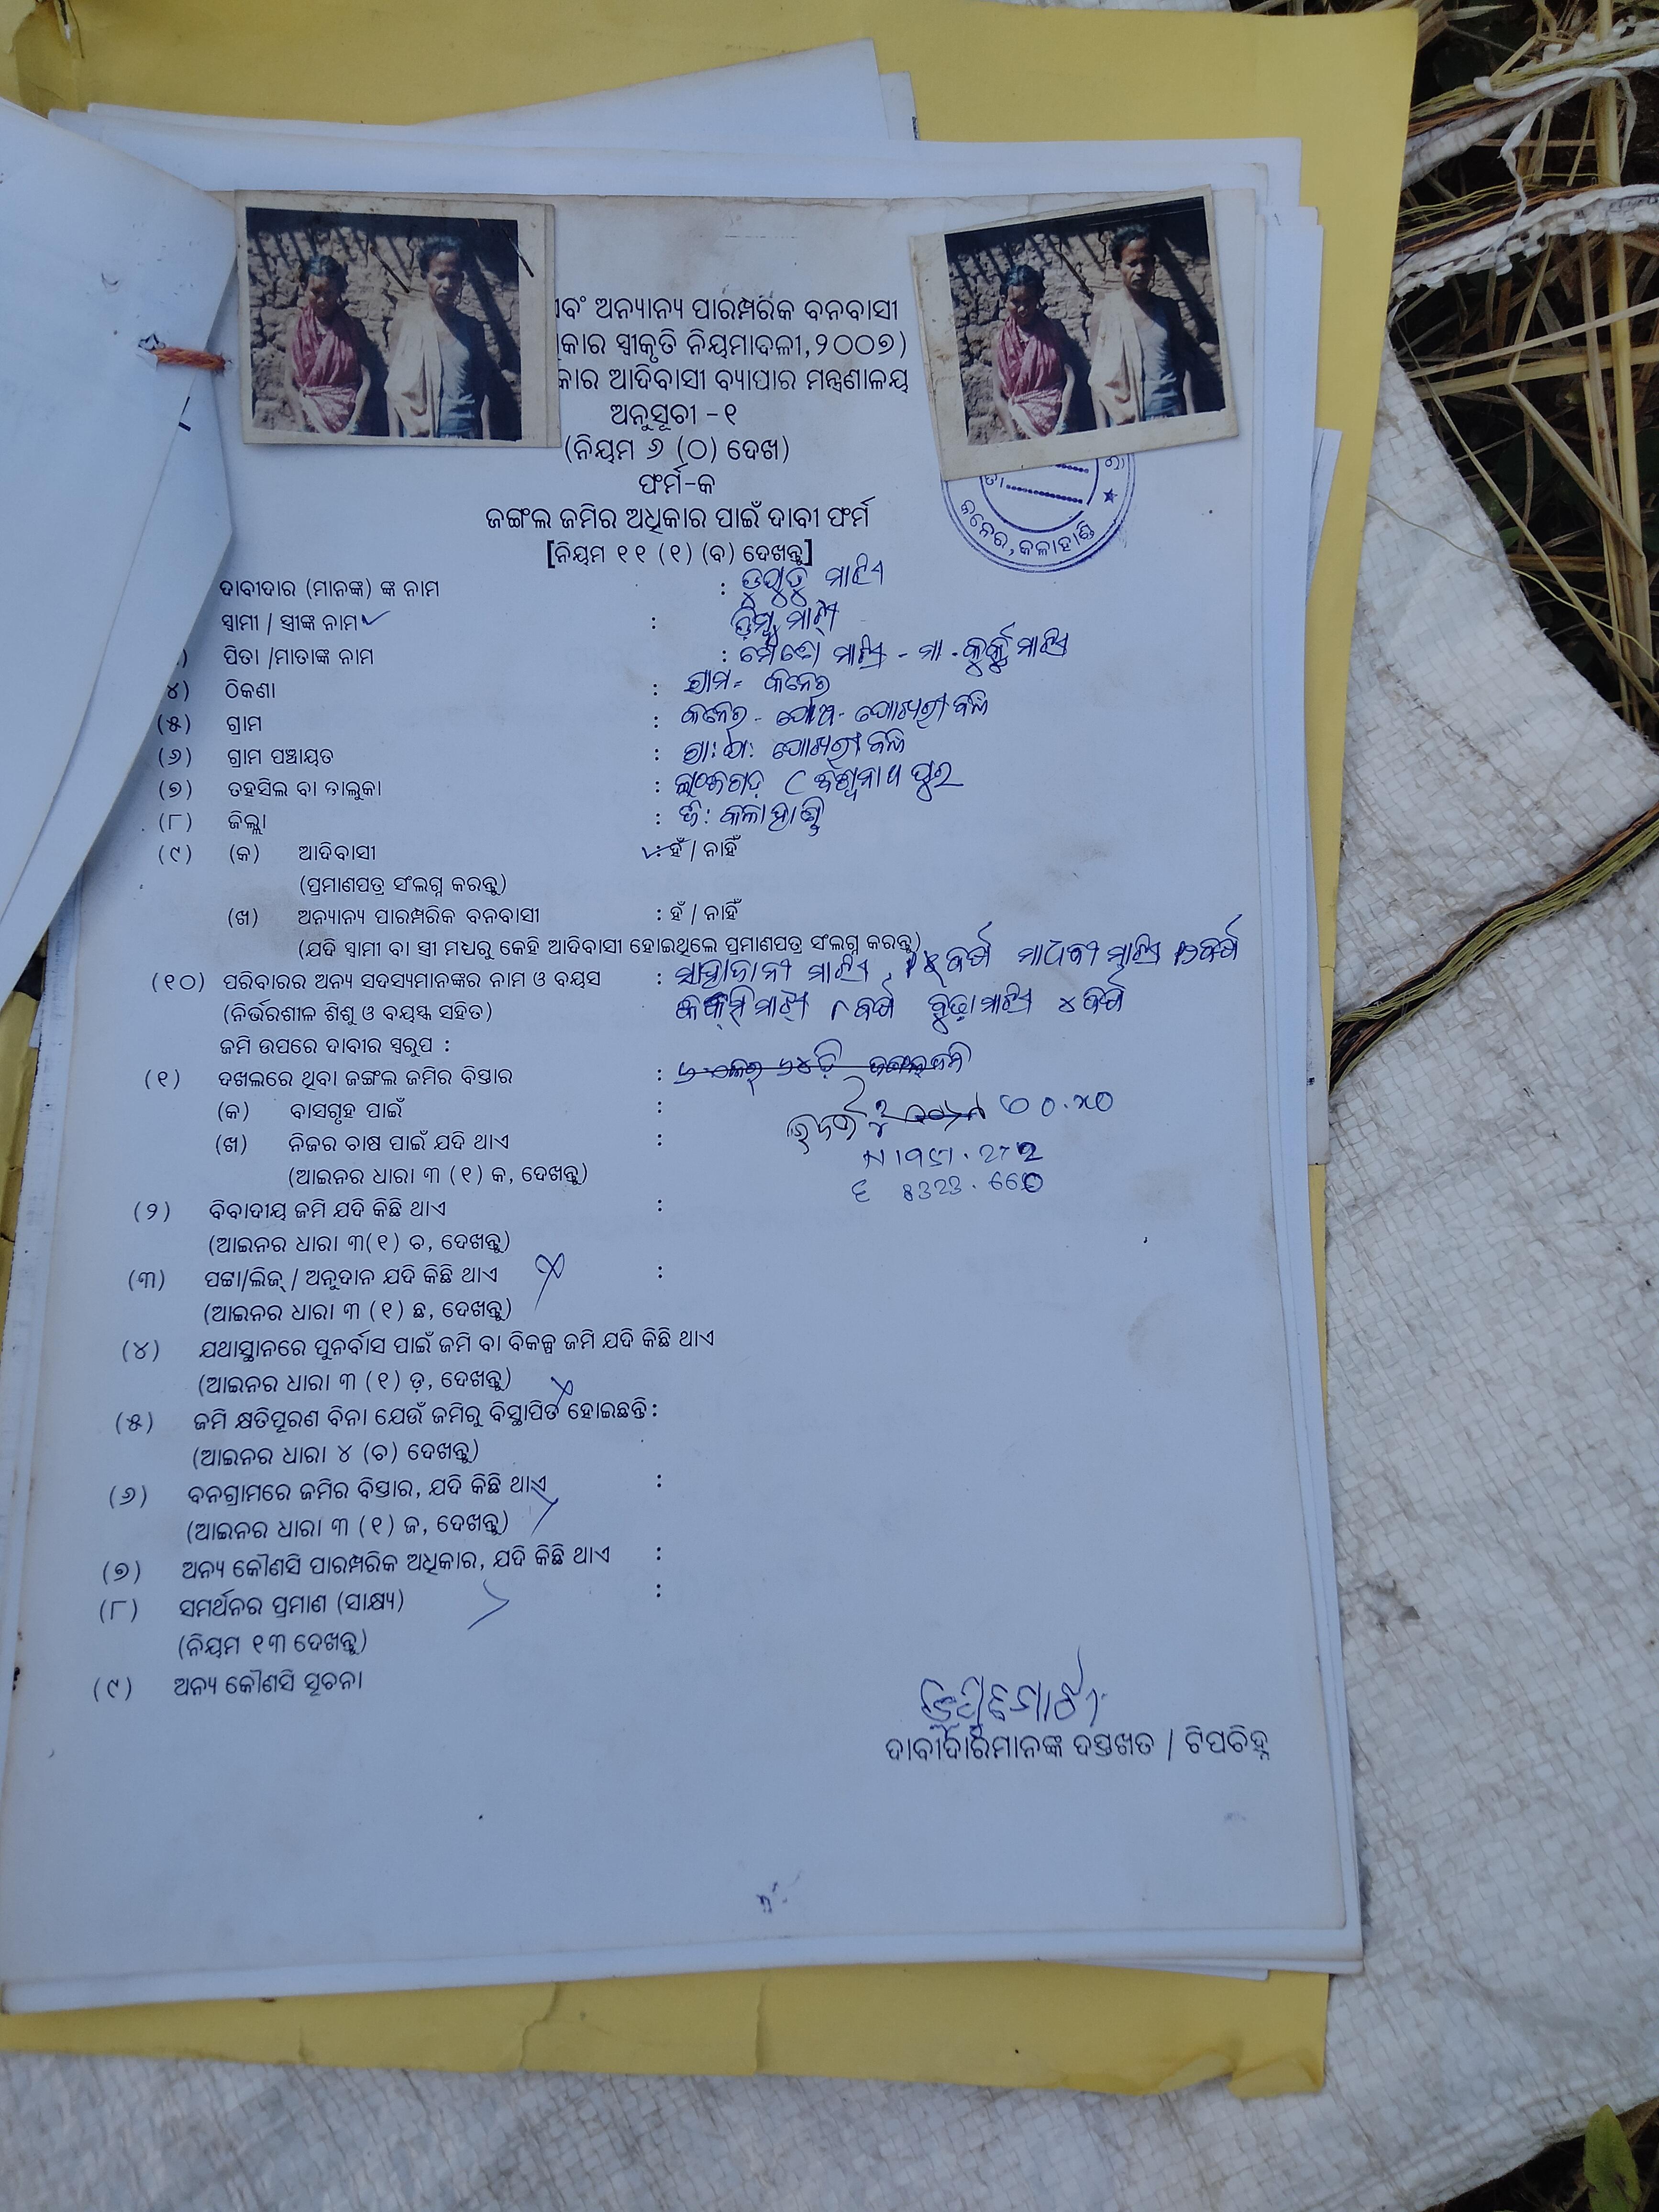 ଏବଂ ଅନ୍ୟାନ୍ୟ ପାରମ୍ପରିକ ବନବାସୀ
ସ୍ଵୀକୃତି ନିୟମାବଳୀ,୨୦୦୭)
ଆଦିବାସୀ ବ୍ୟାପାର ମନ୍ତ୍ରଣାଳୟ
ଅନୁସୂଚୀ -୧
(ନିୟମ ୬ (ଠ) ଦେଖ)
ଫର୍ମ-କ
ଜଙ୍ଗଲ ଜମିର ଅଧିକାର ପାଇଁ ଦାବୀ ଫର୍ମ
[ନିୟମ ୧୧ (୧) (ବ) ଦେଖନ୍ତୁ]
କନେର, କଳାହାଣ୍ଡି
ଦାବୀଦାର (ମାନଙ୍କ) ଙ୍କ ନାମ : ମାଝି
ସ୍ଵାମୀ / ସ୍ତ୍ରୀଙ୍କ ନାମ : ମାଝି
ପିତା /ମାତାଙ୍କ ନାମ : ମାଝି - ମା. ମାଝି
୪) ଠିକଣା : ଗ୍ରାମ- କନେର
(୫) ଗ୍ରାମ : କନେର - ପୋଷ୍ଟ- ପୋଖରୀବନ୍ଧ
(୬) ଗ୍ରାମ ପଞ୍ଚାୟତ : ଗ୍ରା: ପ: ପୋଖରୀବନ୍ଧ
(୭) ତହସିଲ ବା ତାଲୁକା : ଲାଞ୍ଜିଗଡ଼ (ବିଶ୍ୱନାଥ ପୁର
(୮) ଜିଲ୍ଲା : ଜି: କଳାହାଣ୍ଡି
(୯) (କ) ଆଦିବାସୀ : ହଁ / ନାହିଁ
(ପ୍ରମାଣପତ୍ର ସଂଲଗ୍ନ କରନ୍ତୁ)
(ଖ) ଅନ୍ୟାନ୍ୟ ପାରମ୍ପରିକ ବନବାସୀ : ହଁ / ନାହିଁ
(ଯଦି ସ୍ଵାମୀ ବା ସ୍ତ୍ରୀ ମଧ୍ୟରୁ କେହି ଆଦିବାସୀ ହୋଇଥିଲେ ପ୍ରମାଣପତ୍ର ସଂଲଗ୍ନ କରନ୍ତୁ)
(୧୦) ପରିବାରର ଅନ୍ୟ ସଦସ୍ୟମାନଙ୍କର ନାମ ଓ ବୟସ : ମାଝି, ବର୍ଷ ମାଧବୀ ମାଝି ବର୍ଷ
(ନିର୍ଭରଶୀଳ ଶିଶୁ ଓ ବୟସ୍କ ସହିତ) ମାଝି ୮ ବର୍ଷ ବୁଢ଼ା ମାଝି ୪ ବର୍ଷ
ଜମି ଉପରେ ଦାବୀର ସ୍ଵରୁପ :
(୧) ଦଖଲରେ ଥିବା ଜଙ୍ଗଲ ଜମିର ବିସ୍ତାର :
(କ) ବାସଗୃହ ପାଇଁ :
(ଖ) ନିଜର ଚାଷ ପାଇଁ ଯଦି ଥାଏ :
(ଆଇନର ଧାରା ୩ (୧) କ, ଦେଖନ୍ତୁ)
(୨) ବିବାଦୀୟ ଜମି ଯଦି କିଛି ଥାଏ :
(ଆଇନର ଧାରା ୩(୧) ଚ, ଦେଖନ୍ତୁ)
(୩) ପଟ୍ଟା/ଲିଜ୍ / ଅନୁଦାନ ଯଦି କିଛି ଥାଏ :
(ଆଇନର ଧାରା ୩ (୧) ଛ, ଦେଖନ୍ତୁ)
(୪) ଯଥାସ୍ଥାନରେ ପୁନର୍ବାସ ପାଇଁ ଜମି ବା ବିକଳ୍ପ ଜମି ଯଦି କିଛି ଥାଏ
(ଆଇନର ଧାରା ୩ (୧) ଡ଼, ଦେଖନ୍ତୁ)
(୫) ଜମି କ୍ଷତିପୂରଣ ବିନା ଯେଉଁ ଜମିରୁ ବିସ୍ଥାପିତ ହୋଇଛନ୍ତି :
(ଆଇନର ଧାରା ୪ (ଚ) ଦେଖନ୍ତୁ)
(୬) ବନଗ୍ରାମରେ ଜମିର ବିସ୍ତାର, ଯଦି କିଛି ଥାଏ :
(ଆଇନର ଧାରା ୩ (୧) ଜ, ଦେଖନ୍ତୁ)
(୭) ଅନ୍ୟ କୌଣସି ପାରମ୍ପରିକ ଅଧିକାର, ଯଦି କିଛି ଥାଏ :
(୮) ସମର୍ଥନର ପ୍ରମାଣ (ସାକ୍ଷ୍ୟ) :
(ନିୟମ ୧୩ ଦେଖନ୍ତୁ)
(୯) ଅନ୍ୟ କୌଣସି ସୂଚନା
ଦାବୀଦାରମାନଙ୍କ ଦସ୍ତଖତ / ଟିପଚିହ୍ନ